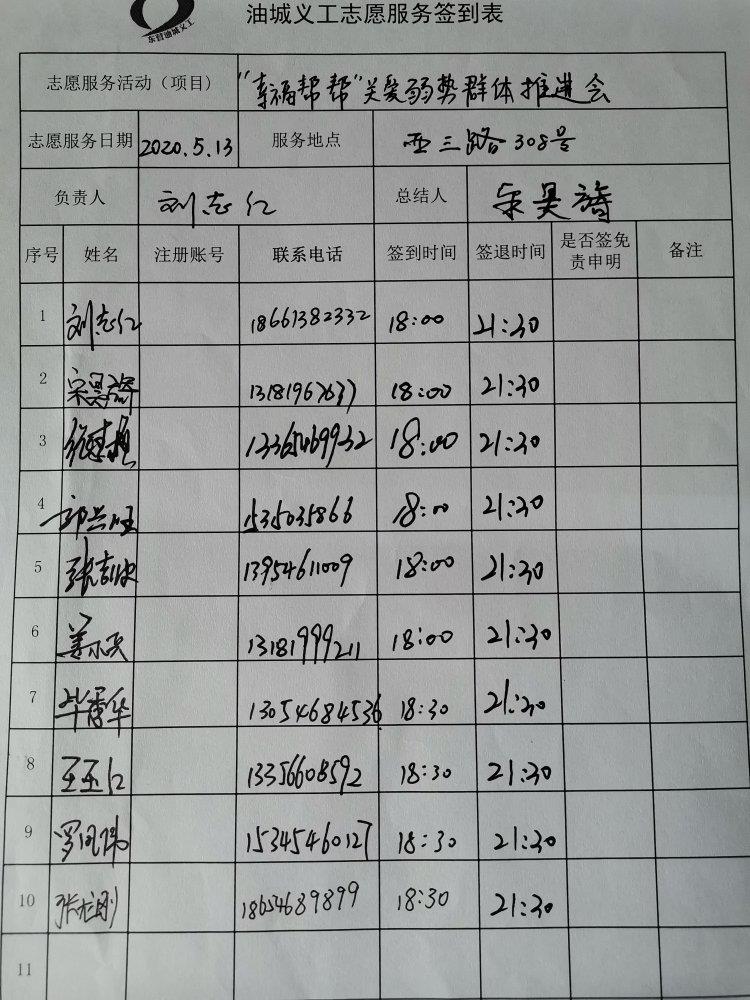 东营油城义工
油城义工志愿服务签到表
志愿服务活动（项目） “幸福帮帮”关爱弱势群体推进会
志愿服务日期 2020.5.13 服务地点 西三路308号
负责人 刘志仁 总结人 宋昊
序号 姓名 注册账号 联系电话 签到时间 签退时间 是否签免责申明 备注
1 刘志仁 18661382332 18:00 21:30
2 宋昊 18:00 21:30
3 18:00 21:30
4 邱兴旺 1535035866 18:00 21:30
5 13954611009 18:00 21:30
6 姜 13181999211 18:00 21:30
7 毕秀华 13054684536 18:30 21:30
8 王玉红 13356608592 18:30 21:30
9 罗 15345460127 18:30 21:30
10 张 18654689899 18:30 21:30
11